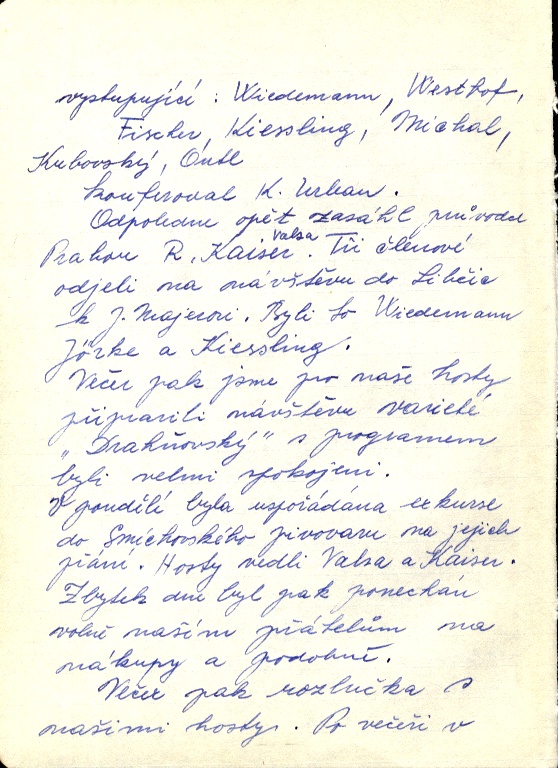 vystupující : Wiedemann, Westhof,
Fischer, Kiessling, Michal,
Kubovský, Ontl
konferoval K. Urban.
Odpoledne opět zasáhl průvodce
Prahou R. Kaiser. Valsa Tři členové
odjeli na návštěvu do Libčic
k J. Majerovi. Byli to Wiedemann
Jörke a Kiessling.
Večer pak jsme pro naše hosty
připravili návštěvu varieté
„Drahňovský" s programem
byli velmi spokojeni.
V pondělí byla uspořádána exkurse
do Smíchovského pivovaru na jejich
přání. Hosty vedli Valsa a Kaiser.
Zbytek dne byl pak ponechán
volně našim přátelům na
nákupy a podobně.
Večer pak rozlučka s
našimi hosty. Po večeři v